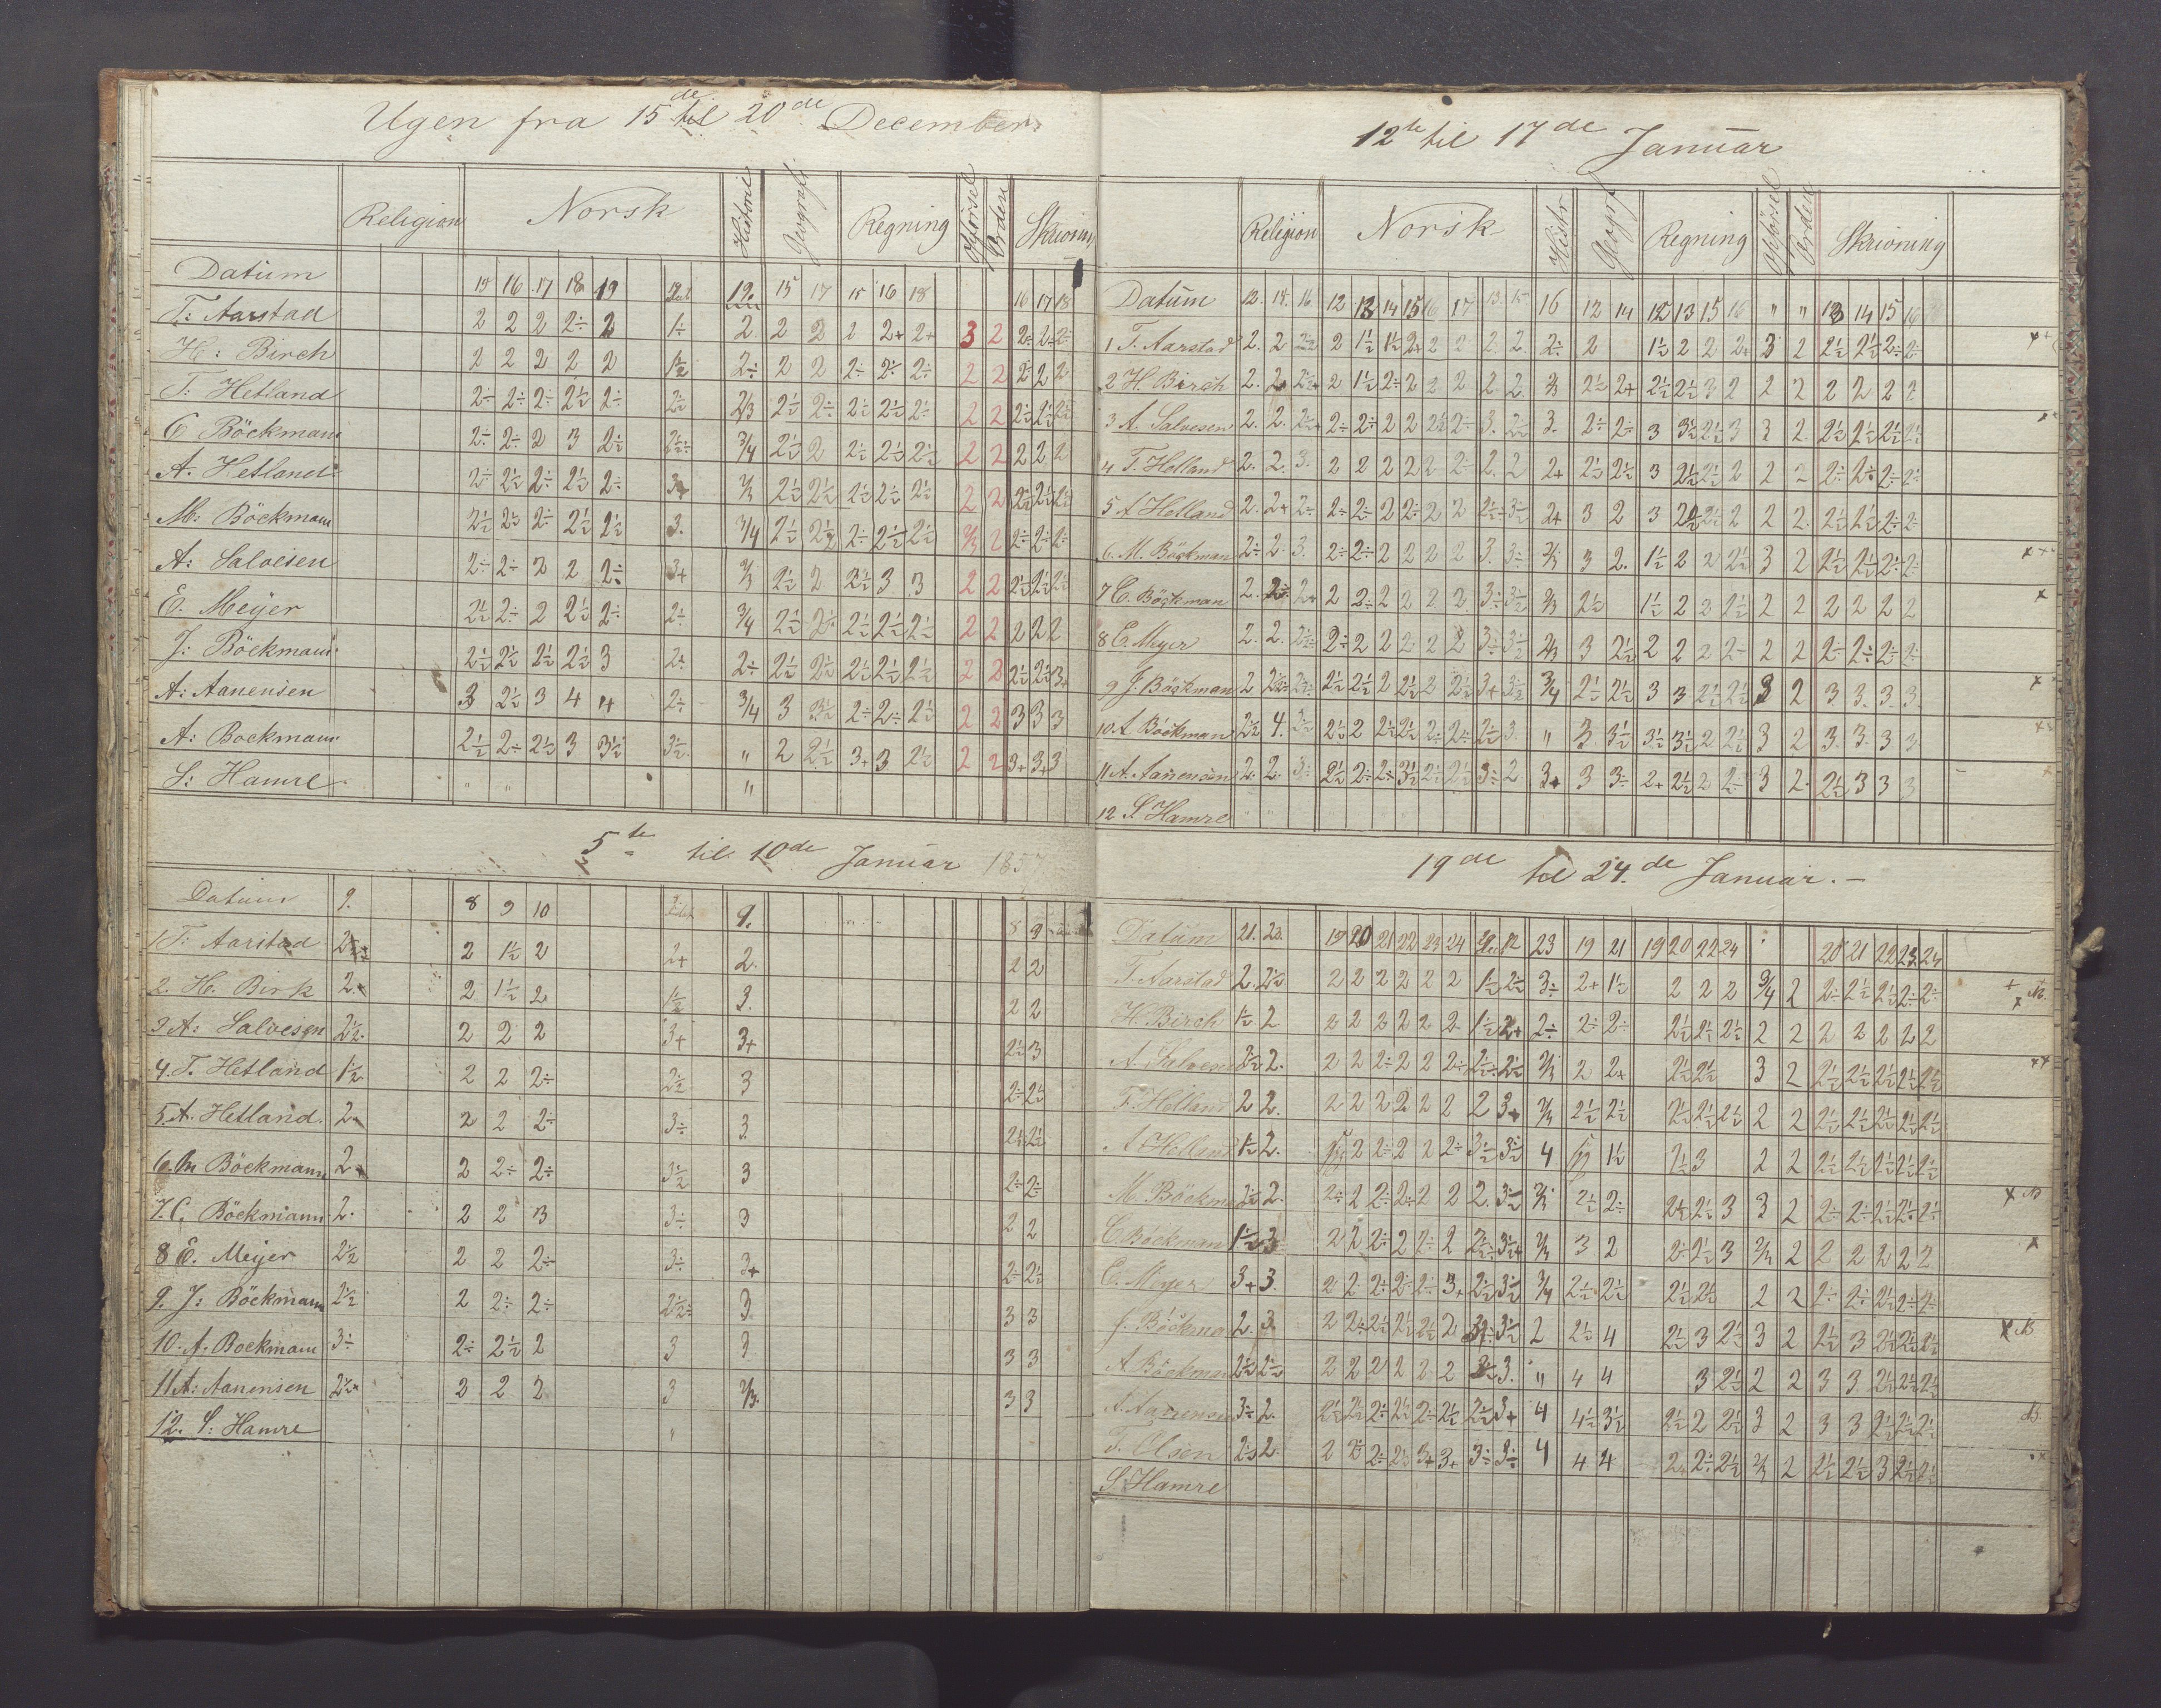 Ugen fra 15de til 20de December.
Religion Norsk Historie Geografi Regning Opførsel Orden Skrivning
Datum 15 16 17 18 19 12. 15 17 15 16 18 16 17 18
T: Aarstad 2 2 2 2÷ 2 1÷ 2. 2 2 2 2+ 2+ 3 2 2÷ 2÷ 2÷
H: Birch 2 2 2 2 2 1½ 2÷ 2 2 2÷ 2÷ 2÷ 2 2 2÷ 2 2
T: Hetland 2÷ 2÷ 2÷ 2½ 2÷ 2½ 2/3 2½ 2÷ 2½ 2½ 2÷ 2 2 2½ 2½ 2½
C Böckmann 2÷ 2÷ 2 3 2½ 2½÷ 3/4 2½ 2 2½ 2½ 2½ 2 2 2 2 2
A. Hetland 2÷ 2½ 2÷ 2½ 2÷ 2/3 2½ 2½ 2½ 2½ 2½ 2 2 2½ 2½ 2½
M: Böckmann 2½ 2½ 2÷ 2½ 2½ 3. 3/4 2½ 2½ 2÷ 2½ 2½ 2/3 2 2÷ 2÷ 2÷
A: Salvesen 2÷ 2÷ 2 2 2÷ 3+ 2/3 2½ 2 2½ 3 3 2 2 2½ 2½ 2½
E. Meyer 2½ 2÷ 2 2½ 2÷ 2÷ 3/4 2½ 2÷ 2½ 2½ 2½ 2 2 2 2 2
J: Böckmann 2½ 2½ 2½ 2½ 3 2÷ 2÷ 2½ 2½ 2½ 2½ 2½ 2 2 2½ 2½ 3+
A: Aanensen 3 2½ 3 4 4 2÷ 3/4 3 3½ 2÷ 2÷ 2½ 2 2 3 3 3
A: Bockmann 2½ 2÷ 2½ 3 3½ 3½ " 2 2½ 3+ 3 2½ 2 2 3+ 3+ 3
S: Hamre " " "
5te til 10de Januar 185
Datum 9. 8 9 10 9. 8 9
1 T: Aarstad 2 1½ 2 2+ 2. 2 2
2. H. Birk 2. 2 1½ 2 1½ 3. 2 2
3 A: Salvesen 2½ 2 2 2 3+ 3+ 2½ 3
4. T. Hetland 1½ 2 2 2÷ 2½ 3 2÷ 2½
5 A. Hetland. 2 2 2 2÷ 3÷ 3. 2½ 2½
6. M Böckmann 2 2 2÷ 2÷ 3½ 3 2÷ 2÷
7. C. Böckmann 2. 2 2 3 3÷ 3 2 2
8 E. Meyer 2½ 2 2 2÷ 3÷ 3+ 2÷ 2½
9. J: Böckmann 2½ 2 2÷ 2÷ 2½÷ 3 3 3
10. A. Bockmann 3÷ 2÷ 2½ 2 3 3 3 3
11 A: Aanensen 2½ 2 2 2 3 2/3. 3 3
12. S: Hamre "
12te til 17de Januar
Religion Norsk Histor Geograf Regning Opførsel Orden Skrivning
Datum 12. 14. 16. 12 13 14 15 16 17 13. 15 16 12 14 12 13 15 16 " " 13 14 15 16
1 T. Aarstad 2. 2 2 1½ 1½ 2+ 2 2 2. 2. 2÷ 2 1½ 2 2 2+ 3 2 2½ 2½ 2÷ 2÷
2 H. Birch 2. 2 2½+ 2 1½ 2÷ 2 2 2 2. 2. 2/3 2½ 2+ 2½ 2½ 3 2 2 2 2 2 2 2
3 A. Salvesen 2. 2. 2½+ 2÷ 2÷ 2 2 2½ 2÷ 3. 2½ 3. 2÷ 2÷ 3 3½ 2½ 3 3 2. 2½ 2½ 2½ 2½
4 T. Hetland 2. 2. 3. 2 2 2 2 2 2÷ 2. 2 2+ 2½ 2½ 3 2½ 2½ 2 2 2 2÷ 2÷ 2÷ 2÷
5 A Hetland 2. 2+ 2÷ 2÷ 2÷ 2 2÷ 2 2 2½÷ 3½ 2+ 3 2 3 2½ 2½ 2 2 2. 2½ 2½ 2÷ 2÷
6. M. Böckman 2÷ 2. 3. 2÷ 2÷ 2 2 2 2 3. 3÷ 2/3 3 2. 1½ 2 2 2½ 3 2 2½ 2½ 2÷ 2÷
7 C. Böckman 2. 2÷ 2+ 2 2÷ 2 2 2 2 3÷ 3½ 2/3 2½ 1½ 2 2 2½ 2 2 2 2 2 2
8 E. Meyer 2. 2. 2½÷ 2÷ 2 2 2 2 2 3÷ 3½ 2/3 3 2½ 2 2 2 2÷ 2 2 2÷ 2÷ 2÷ 2÷
9 J. Böckman 2 2½ 2½÷ 2½ 2½ 2 2½ 2 2½ 3+ 3½ 3/4 2½ 2½ 3 3 2½ 2½ 3 2 3. 3. 3. 3.
10. A. Böckman 2½ 4. 3½ 2½ 2 2½ 2½ 2÷ 2÷ 2½ 3. " 3. 3½ 3½ 3½ 2 2½ 3 2 3. 3. 3 3
11 A. Aanensen 2. 2. 3÷ 2½ 2÷ 2÷ 3½ 2½ 2½ 3÷ 2 3+ 3 3÷ 2+ 2½ 2 2÷ 3 2. 2½ 3 3 3
12 S. Hamre
19de til 24de Januar.
Datum 21. 23. 19 20 21 22 23 24 12 23 19 21 19 20 22 24 20 21 22 23 24
T. Aarstad 2. 2½ 2 2 2 2 2 2 1½ 2½ 3÷ 2+ 1½ 2 2 2 3/4 2 2÷ 2½ 2½ 2÷ 2÷
H. Birch 1½ 2 2 2 2 2 2 2 1½ 2+ 2÷ 2÷ 2÷ 2½ 2½ 2½ 2 2 2 2 2 2 2
A. Salvesen 2½ 2. 2 2 2÷ 2 2 2÷ 2½÷ 2½ 2/3 2 2+ 2½ 2½ 3 2 2½ 2½ 2½ 2½ 2½
T. Hetland 2 2. 2 2 2 2 2 2 2 3+ 2/3 2½ 2½ 2½ 2½ 2½ 2 2 2½ 2½ 2½ 2½ 2½
A Hetland 1½ 2. 2 2÷ 2 2 2÷ 3½ 3½ 4 1½ 2½ 3 2 2 2½ 2½ 2½ 2½ 2½
M. Böckman 2½ 2. 2÷ 2 2÷ 2÷ 2 2 2. 3½ 2/3 2½ 2÷ 2½ 2½ 3 3 2 2÷ 2÷ 2½ 2÷ 2½
C Böckman 1½ 3 2 2 2÷ 2 2 2 2½ 3½+ 2/3 3 2 2÷ 2½ 3 2/3 2 2 2 2 2 2
E. Meyer 3+ 3. 2 2 2÷ 2÷ 2÷ 3+ 2½ 3½ 3/4 2½ 2½ 2½ 2½ 2 2 2÷ 2÷ 2½ 2÷ 2÷
J. Böckman 2. 3. 2 2÷ 2½ 2½ 2½ 2 3½ 2 2½ 4 2½ 3 2½ 3 2 2½ 3 2½ 2½ 2½
A Böckman 2½ 2½ 2 2 2 2 2 2 3. " 4 4 3 2½ 2 2 3 3 2½ 2½ 2½
A. Aanensen 3÷ 2. 2½ 2½ 2÷ 2½ 2÷ 2½ 2½ 3+ 4 4½ 3½ 2½ 2 2½ 3 2 3 3 2½ 2½ 2½
T. Olsen 2½ 2. 2 2÷ 2÷ 2½ 3+ 3+ 3÷ 3÷ 4 4 4 2+ 2÷ 2½ 2/3 2 2½ 2½ 3 2½ 2½
S. Hamre